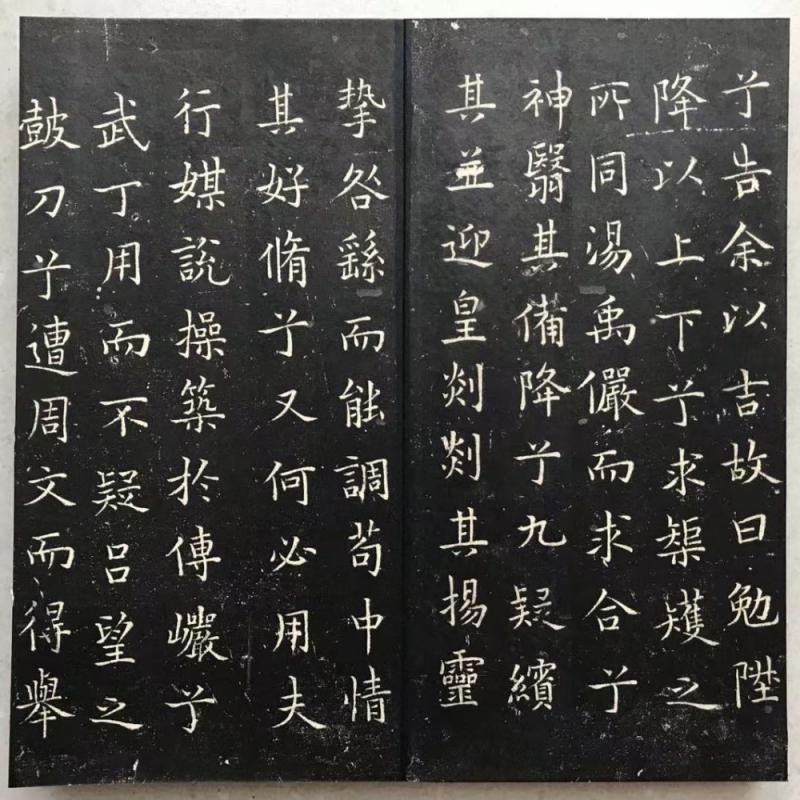 兮告余以吉故曰勉陞
降以上下兮求榘矱之
所同湯禹儼而求合兮
神翳其備降兮九疑繽
其並迎皇剡剡其揚靈
摯咎繇而能調苟中情
其好脩兮又何必用夫
行媒說操築於傅巗兮
武丁用而不疑吕望之
皷刀兮遭周文而得舉